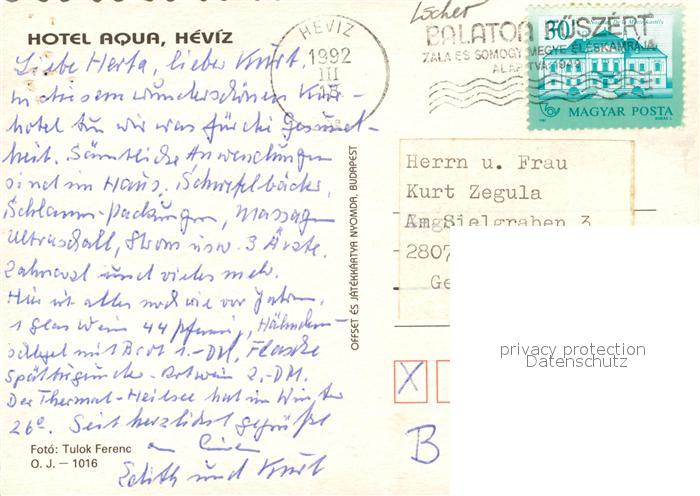 Löscher
HOTEL AQUA, HÉVÍZ
HÉVÍZ
1992
III
BALATON FŰSZÉRT
ZALA ÉS SOMOGY MEGYE ÉLÉSKAMRÁJA
ALAPÍTVA 1949
30
MAGYAR POSTA
Liebe Herta, lieber Kurt.
In diesem wunderschönen Kur-
hotel tun wir was für die Gesund-
heit. Sämtliche Anwendungen
sind im Haus. Schwefelbäder,
Schlamm-packungen, Massagen
Ultraschall, Strom usw. 3 Ärzte.
Zahnarzt und vieles mehr.
Hier ist alles noch wie vor Jahren.
1 Glas Wein 44 Pfennig, Hähnchen-
schlegel mit Brot 1.-DM. Flasche
Rotwein 2.-DM.
Der Thermal-Heilsee hat im Winter
26°. Seit herzlichst gegrüßt
Edith und Kurt
Fotó: Tulok Ferenc
O. J. — 1016
OFFSET ÉS JÁTÉKKÁRTYA NYOMDA, BUDAPEST
Herrn u. Frau
Kurt Zegula
Am Sielgraben 3
2807
Ge
privacy protection
Datenschutz
X
B